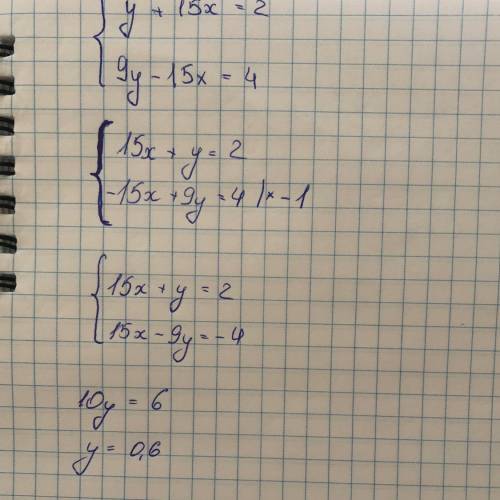 y + 15x = 2
9y - 15x = 4
15x + y = 2
-15x + 9y = 4 |× -1
15x + y = 2
15x - 9y = -4
10y = 6
y = 0,6